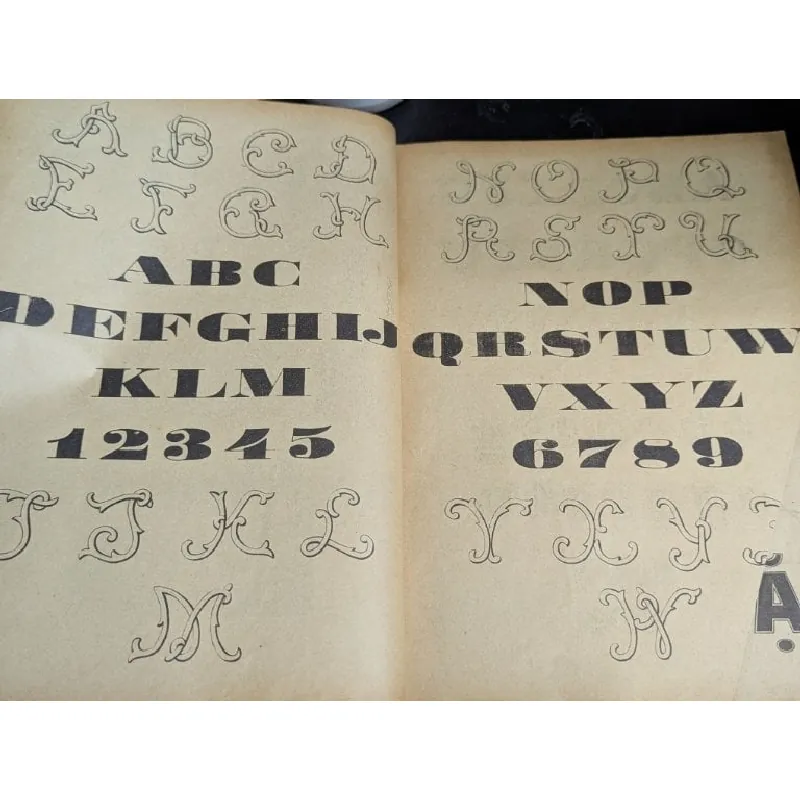 A B C D
E F G H
ABC
DEFGHIJ
KLM
12345
I J K L
M
N O P Q
R S T U
NOP
QRSTUW
VXYZ
6789
V X Y
W
Ặ